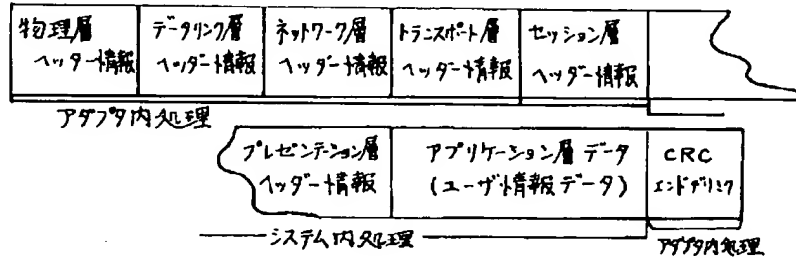 物理層
ヘッダー情報
データリンク層
ヘッダー情報
ネットワーク層
ヘッダー情報
トランスポート層
ヘッダー情報
セッション層
ヘッダー情報
アダプタ内処理
プレゼンテーション層
ヘッダー情報
アプリケーション層データ
(ユーザ情報データ)
CRC
エンドデリミタ
システム内処理
アダプタ内処理